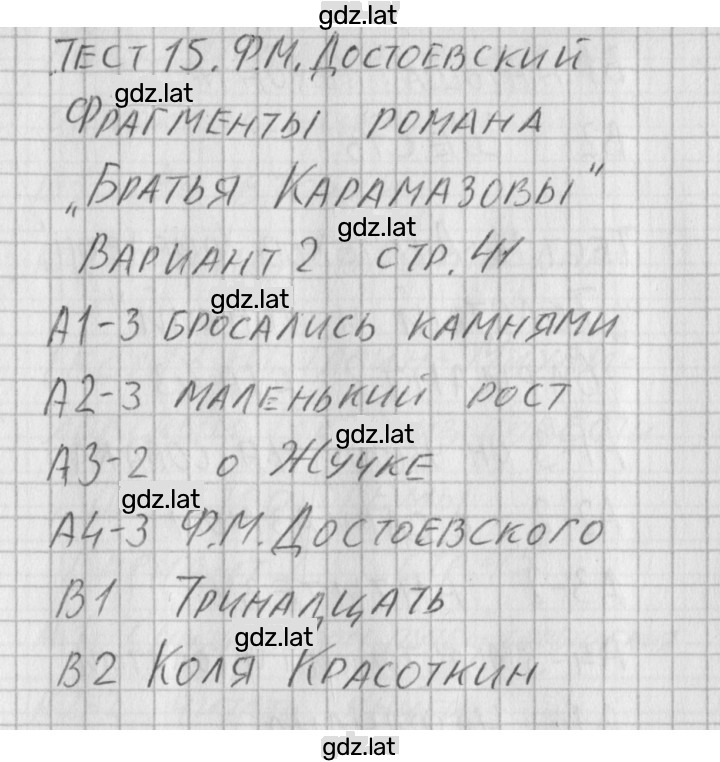 gdz.lat
ТЕСТ 15. Ф.М. ДОСТОЕВСКИЙ
gdz.lat
ФРАГМЕНТЫ РОМАНА
„БРАТЬЯ КАРАМАЗОВЫ"
gdz.lat
ВАРИАНТ 2 СТР. 41
gdz.lat
А1-3 БРОСАЛИСЬ КАМНЯМИ
А2-3 МАЛЕНЬКИЙ РОСТ
gdz.lat
А3-2 О ЖУЧКЕ
gdz.lat
А4-3 Ф.М. ДОСТОЕВСКОГО
В1 ТРИНАДЦАТЬ
gdz.lat
В2 КОЛЯ КРАСОТКИН
gdz.lat